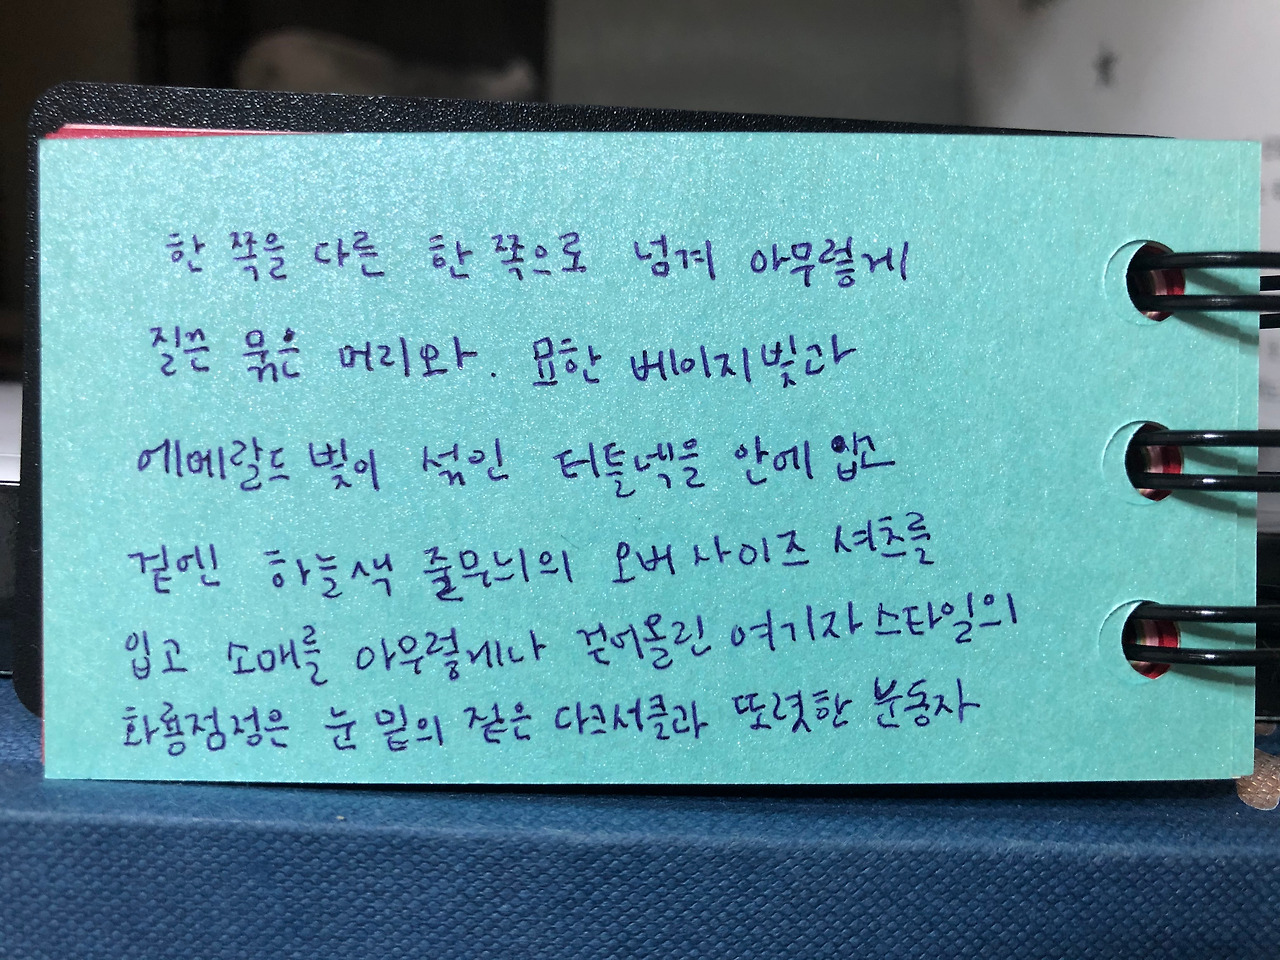 한 쪽을 다른 한 쪽으로 넘겨 아무렇게
질끈 묶은 머리와. 묘한 베이지빛과
에메랄드 빛이 섞인 터틀넥을 안에 입고
겉엔 하늘색 줄무늬의 오버사이즈 셔츠를
입고 소매를 아무렇게나 걷어올린 여기자 스타일의
화룡점정은 눈 밑의 짙은 다크서클과 또렷한 눈동자